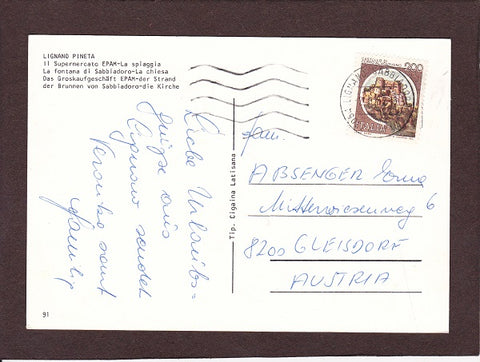 LIGNANO PINETA
Il Supernercato EPAM-La spiaggia
La fontana di Sabbiadoro-La chiesa
Das Groskaufgeschäft EPAM-der Strand
der Brunnen von Sabbiadoro-die Kirche
Liebe Urlaubs=
grüße aus
Lignano sendet
Veronika samt
Familie
Tip. Cigaina Latisana
200
ITALIA
LIGNANO SABBIADORO
Fam.
ABSENGER Erna
Mitterwiesenweg 6
8200 GLEISDORF
AUSTRIA
91